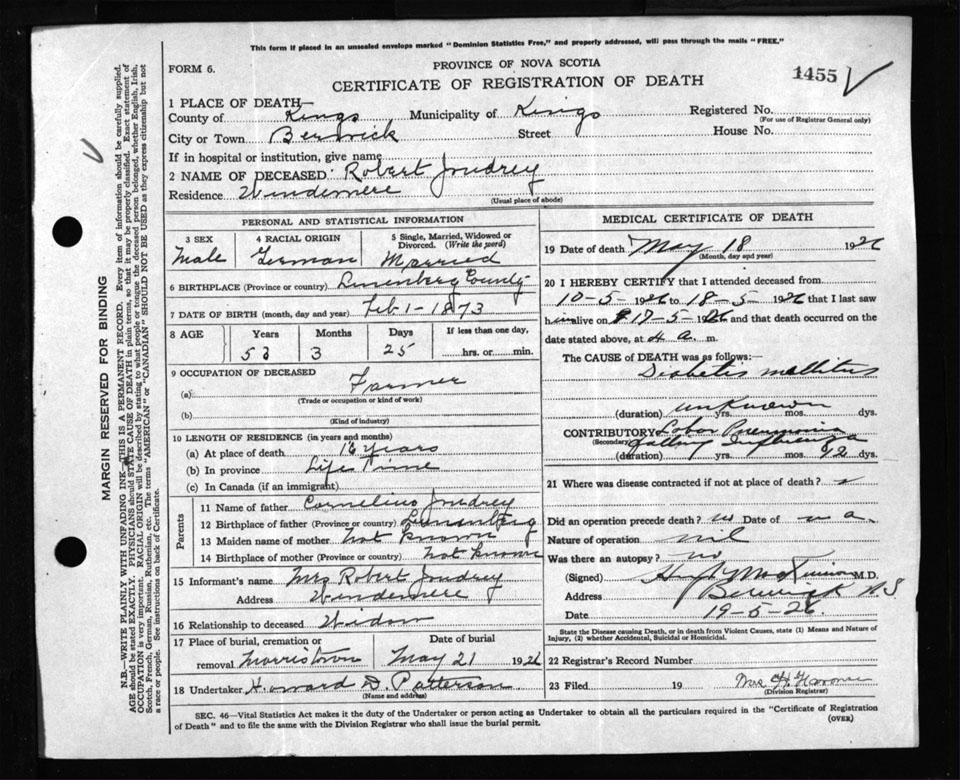 This form if placed in an unsealed envelope marked "Dominion Statistics Free," and properly addressed, will pass through the mails "FREE."
PROVINCE OF NOVA SCOTIA
FORM 6.
CERTIFICATE OF REGISTRATION OF DEATH
1455
1 PLACE OF DEATH—
County of Kings Municipality of Kings Registered No.
(For use of Registrar General only)
City or Town Berwick Street House No.
If in hospital or institution, give name
2 NAME OF DECEASED: Robert Joudrey
Residence Windermere
(Usual place of abode)
PERSONAL AND STATISTICAL INFORMATION
3 SEX Male
4 RACIAL ORIGIN German
5 Single, Married, Widowed or Divorced. (Write the word) Married
6 BIRTHPLACE (Province or country) Lunenberg County
7 DATE OF BIRTH (month, day and year) Feb 1 - 1873
8 AGE Years 53 Months 3 Days 25 If less than one day, hrs. or min.
9 OCCUPATION OF DECEASED
(a) Farmer
(Trade or occupation or kind of work)
(b)
(Kind of industry)
10 LENGTH OF RESIDENCE (in years and months)
(a) At place of death 16 years
(b) In province Life Time
(c) In Canada (if an immigrant)
Parents
11 Name of father Cornelius Joudrey
12 Birthplace of father (Province or country) Lunenberg
13 Maiden name of mother not known
14 Birthplace of mother (Province or country) not known
15 Informant's name Mrs Robert Joudrey
Address Windermere
16 Relationship to deceased Widow
17 Place of burial, cremation or removal Morristown
Date of burial May 21 1926
18 Undertaker Howard D. Patterson
(Name and address)
MEDICAL CERTIFICATE OF DEATH
19 Date of death May 18 1926
(Month, day and year)
20 I HEREBY CERTIFY that I attended deceased from
10-5- 1926 to 18-5- 1926 that I last saw
him alive on 17-5- 1926 and that death occurred on the
date stated above, at 4 a. m.
The CAUSE OF DEATH was as follows:
Diabetes mellitus
(duration) unknown yrs. mos. dys.
CONTRIBUTORY Lobar Pneumonia
(Secondary) Influenza
(duration) yrs. mos. dys.
21 Where was disease contracted if not at place of death?
Did an operation precede death? no Date of n a.
Nature of operation nil
Was there an autopsy? no
(Signed) M.D.
Address Berwick N S
Date 19-5-26.
State the Disease causing Death, or in death from Violent Causes, state (1) Means and Nature of
Injury, (2) whether Accidental, Suicidal or Homicidal.
22 Registrar's Record Number
23 Filed 19 Mrs H.
(Division Registrar)
SEC. 46—Vital Statistics Act makes it the duty of the Undertaker or person acting as Undertaker to obtain all the particulars required in the "Certificate of Registration
of Death" and to file the same with the Division Registrar who shall issue the burial permit.
(OVER)
MARGIN RESERVED FOR BINDING
N.B.—WRITE PLAINLY WITH UNFADING INK—THIS IS A PERMANENT RECORD. Every item of information should be carefully supplied.
AGE should be stated EXACTLY. PHYSICIANS should STATE CAUSE OF DEATH in plain terms, so that it may be properly classified. Exact statement of
OCCUPATION is very important. RACIAL ORIGIN will be described by stating to what people or tongue the deceased person belonged, whether English, Irish,
Scotch, French, German, Russian, Ruthenian, etc. The terms "AMERICAN" or "CANADIAN" SHOULD NOT BE USED as they express citizenship but not
a race or people. See instructions on back of Certificate.